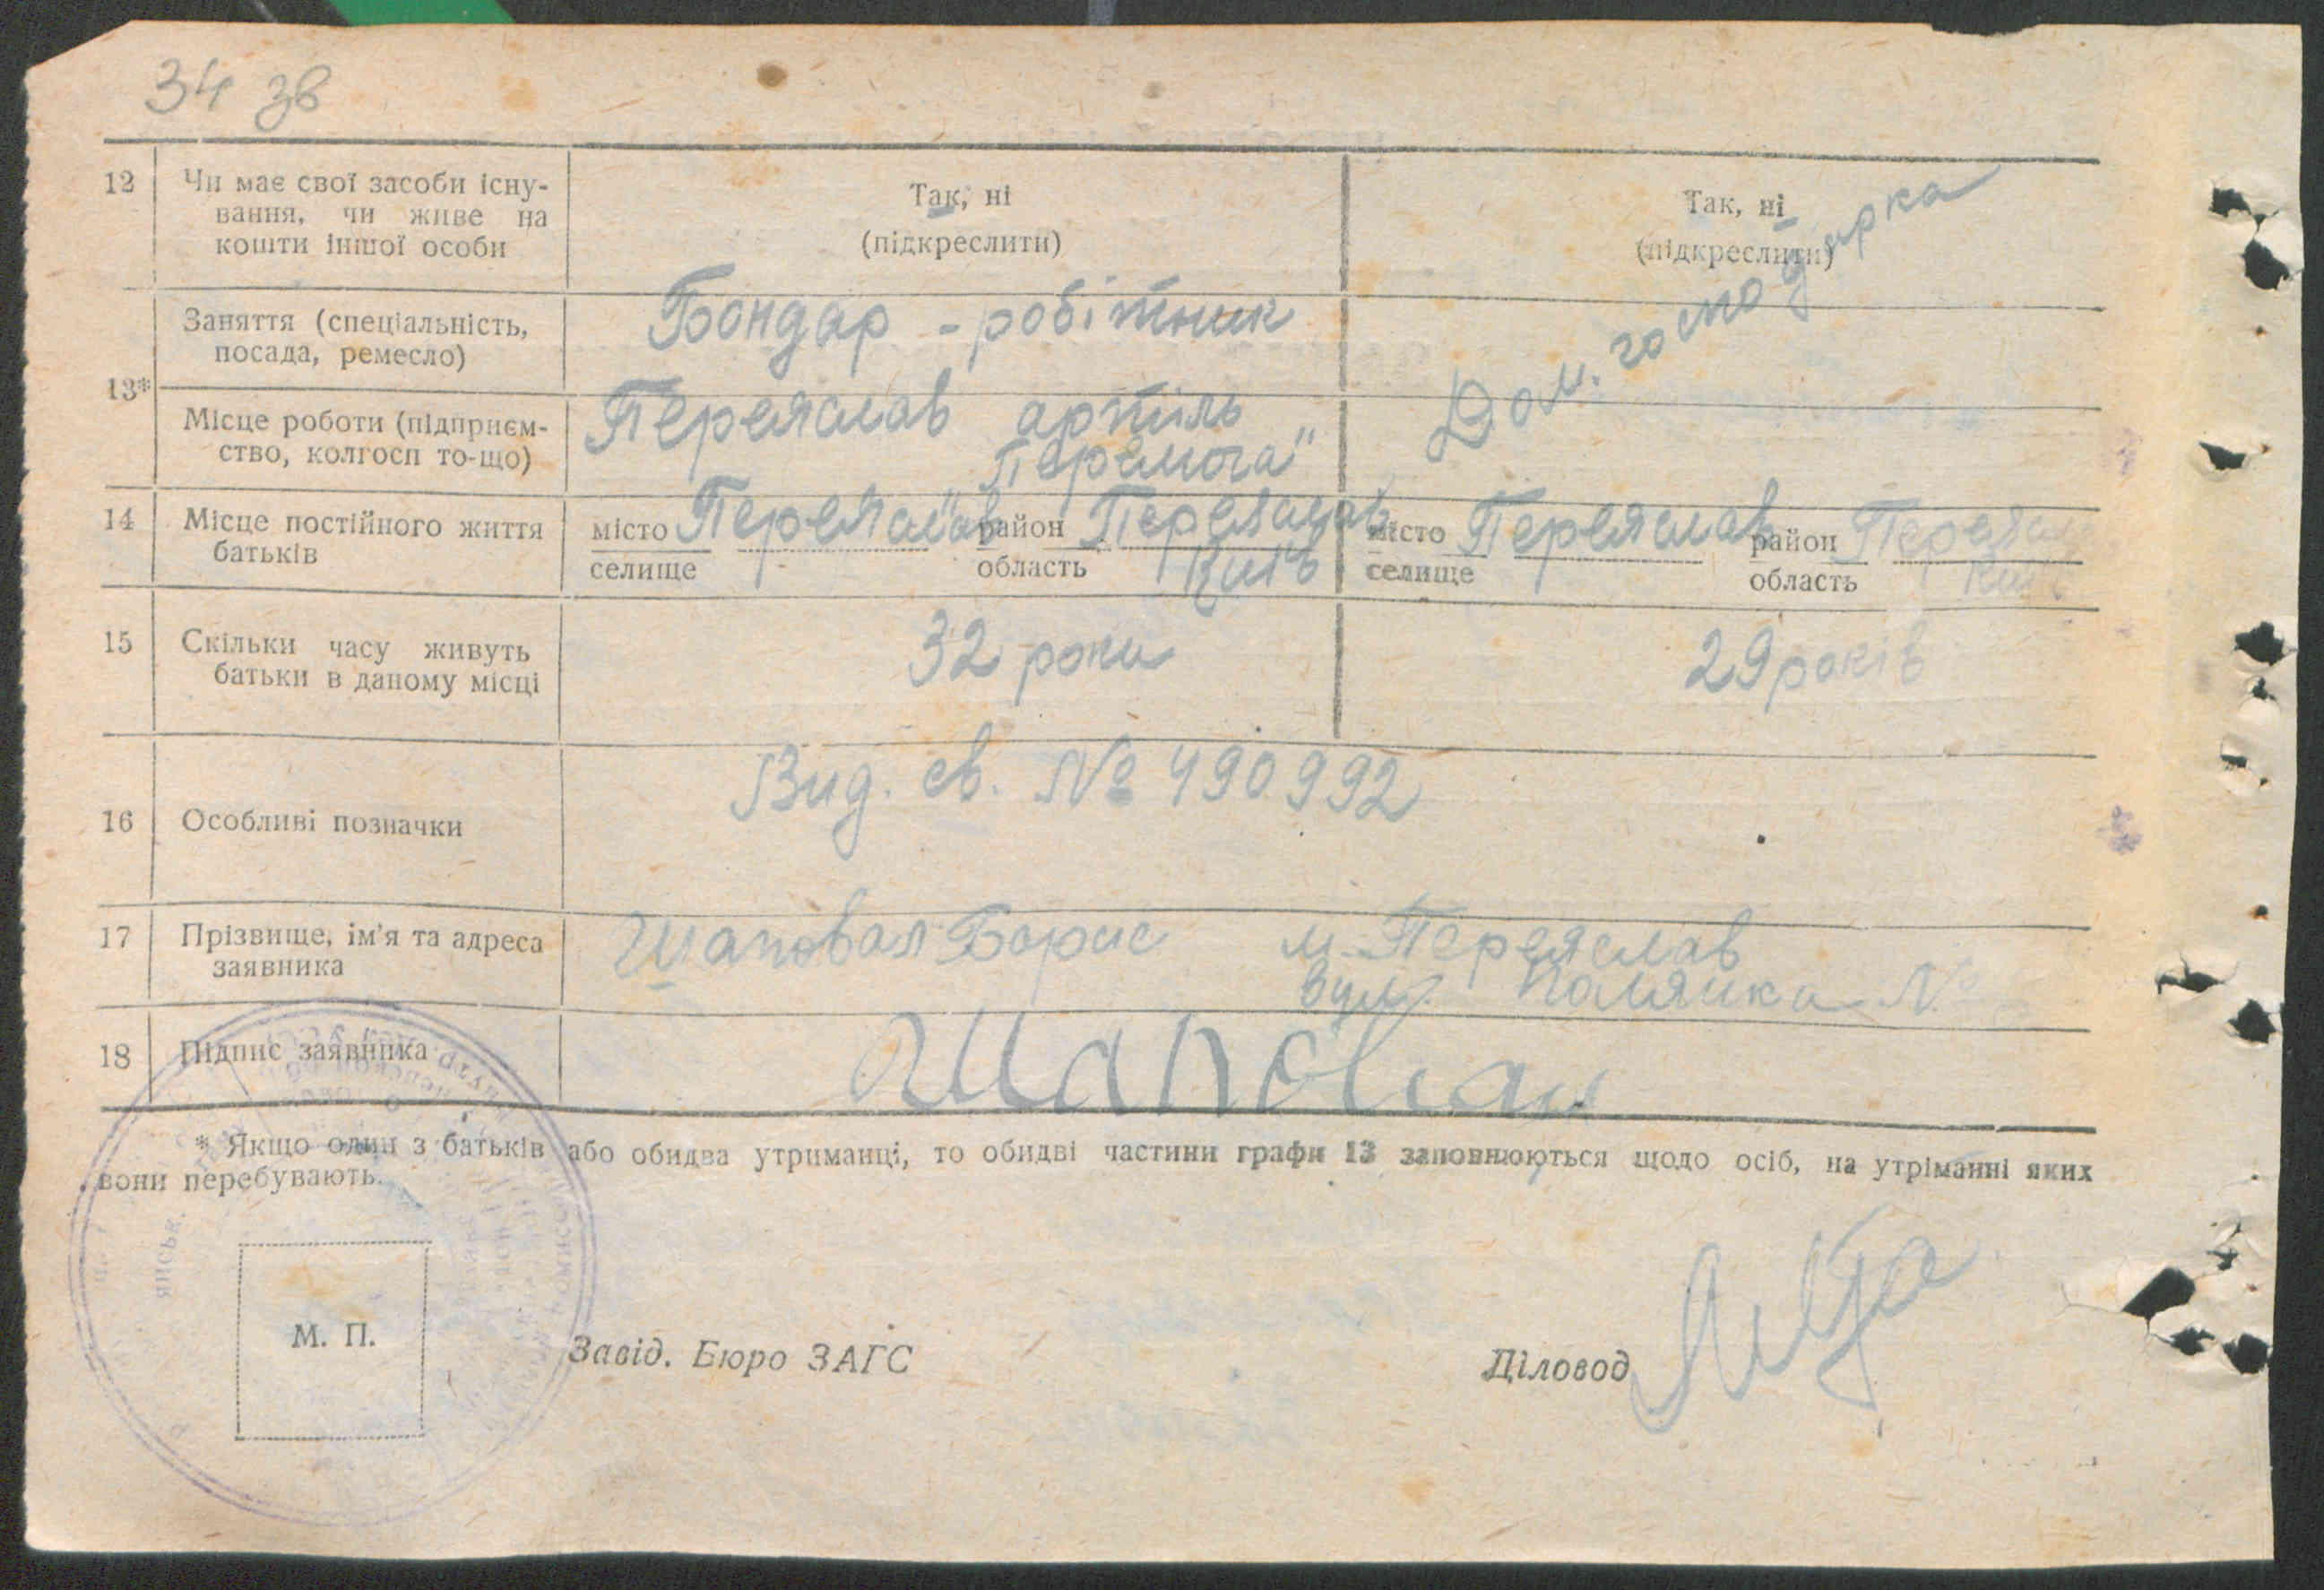 34 зв
12 Чи має свої засоби існу-
вання, чи живе на
кошти іншої особи
Так, ні
(підкреслити)
Так, ні
(підкреслити)
13*
Заняття (спеціальність,
посада, ремесло)
Бондар - робітник
Дом. господарка
Місце роботи (підприєм-
ство, колгосп то-що)
Переяслав артіль
„Перемога"
14 Місце постійного життя
батьків
місто Переяслав район Переяслав
селище область Київ
місто Переяслав район Переяслав
селище область Київ
15 Скільки часу живуть
батьки в даному місці
32 роки
29 років
16 Особливі позначки
Вид. св. № 490992
17 Прізвище, ім'я та адреса
заявника
Шаповал Борис м. Переяслав
вул. №
18 Підпис заявника
Шаповал
* Якщо один з батьків або обидва утриманці, то обидві частини графи 13 заповнюються щодо осіб, на утріманні яких
вони перебувають.
М. П.
Завід. Бюро ЗАГС
Діловод